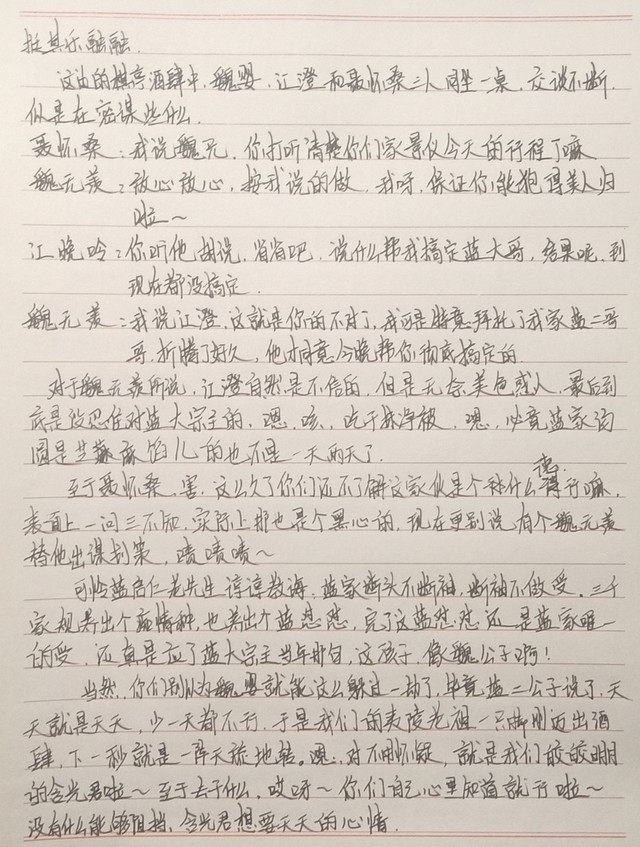 挺其乐融融.
这边的棋亭酒肆中，魏婴，江澄和聂怀桑三人同坐一桌，交谈不断，
似是在密谋些什么.
聂怀桑：我说魏兄，你打听清楚你们家景仪今天的行程了嘛
魏无羡：放心放心，按我说的做，我呀，保证你能抱得美人归
啦～
江晚吟：你听他胡说，省省吧，说什么帮我搞定蓝大哥，结果呢，到
现在都没搞定.
魏无羡：我说江澄，这就是你的不对了，我可是特意拜托了我家蓝二哥
哥，折腾了好久，他才同意今晚帮你彻底搞定的.
对于魏无羡所说，江澄自然是不信的，但是无奈美色惑人，最后到
底是没忍住对蓝大宗主的，嗯，咳，吃干抹净被，嗯，必竟蓝家汤
圆是芝麻馅儿的也不是一天两天了.
至于聂怀桑，害，这么久了你们还不了解这家伙是个种什么德行嘛，
表面上一问三不知，实际上那也是个黑心的，现在更别说有个魏无羡
替他出谋划策，啧啧啧～
可怜蓝启仁老先生谆谆教诲，蓝家断头不断袖，断袖不做受，三千
家规养出个痴情种，也养出个蓝怼怼，完了这蓝怼怼还是蓝家唯一
的受，还真是应了蓝大宗主当年那句，这孩子，像魏公子啊！
当然，你们别以为魏婴就能这么躲过一劫了，毕竟蓝二公子说了，天
天就是天天，少一天都不行，于是我们的夷陵老祖一只脚刚迈出酒
肆，下一秒就是一阵天旋地转。嗯，对不用怀疑，就是我们皎皎明月
的含光君啦～至于去干什么，哎呀～你们自己心里知道就行啦～
没有什么能够阻挡，含光君想要天天的心情.